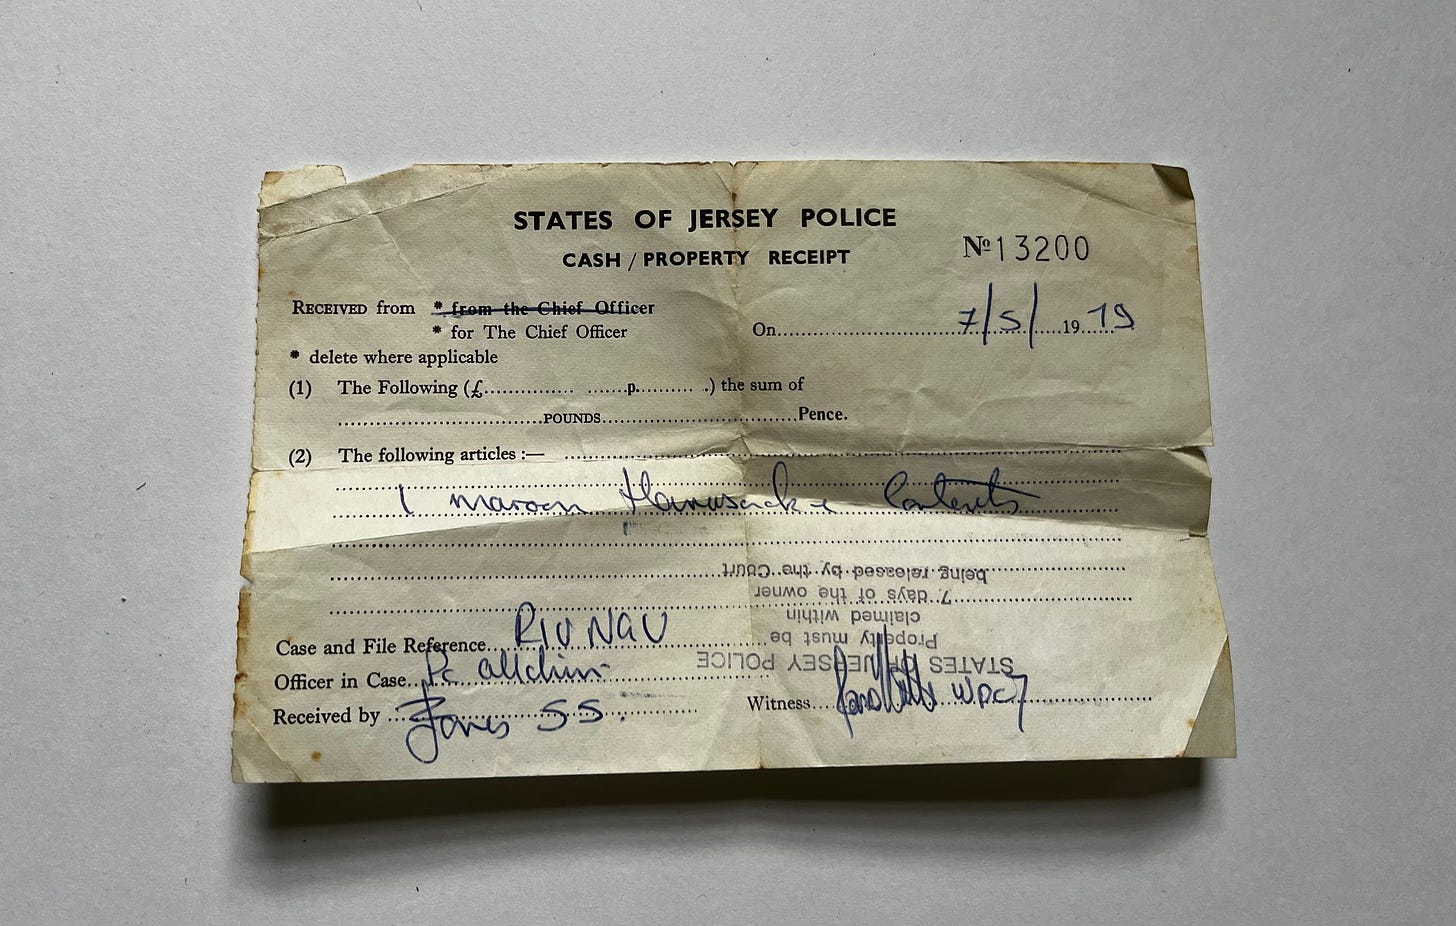 STATES OF JERSEY POLICE
CASH / PROPERTY RECEIPT
№ 13200
RECEIVED from * from the Chief Officer
* for The Chief Officer
On 7/5/ 19 79
* delete where applicable
(1) The Following (£ p ) the sum of
POUNDS Pence.
(2) The following articles :—
1 maroon Haversack & Contents
being released by the Court
7 days of the owner
claimed within
Property must be
STATES OF JERSEY POLICE
Case and File Reference
Officer in Case Pc Allchin
Received by Jones SS.
Witness WPC 7